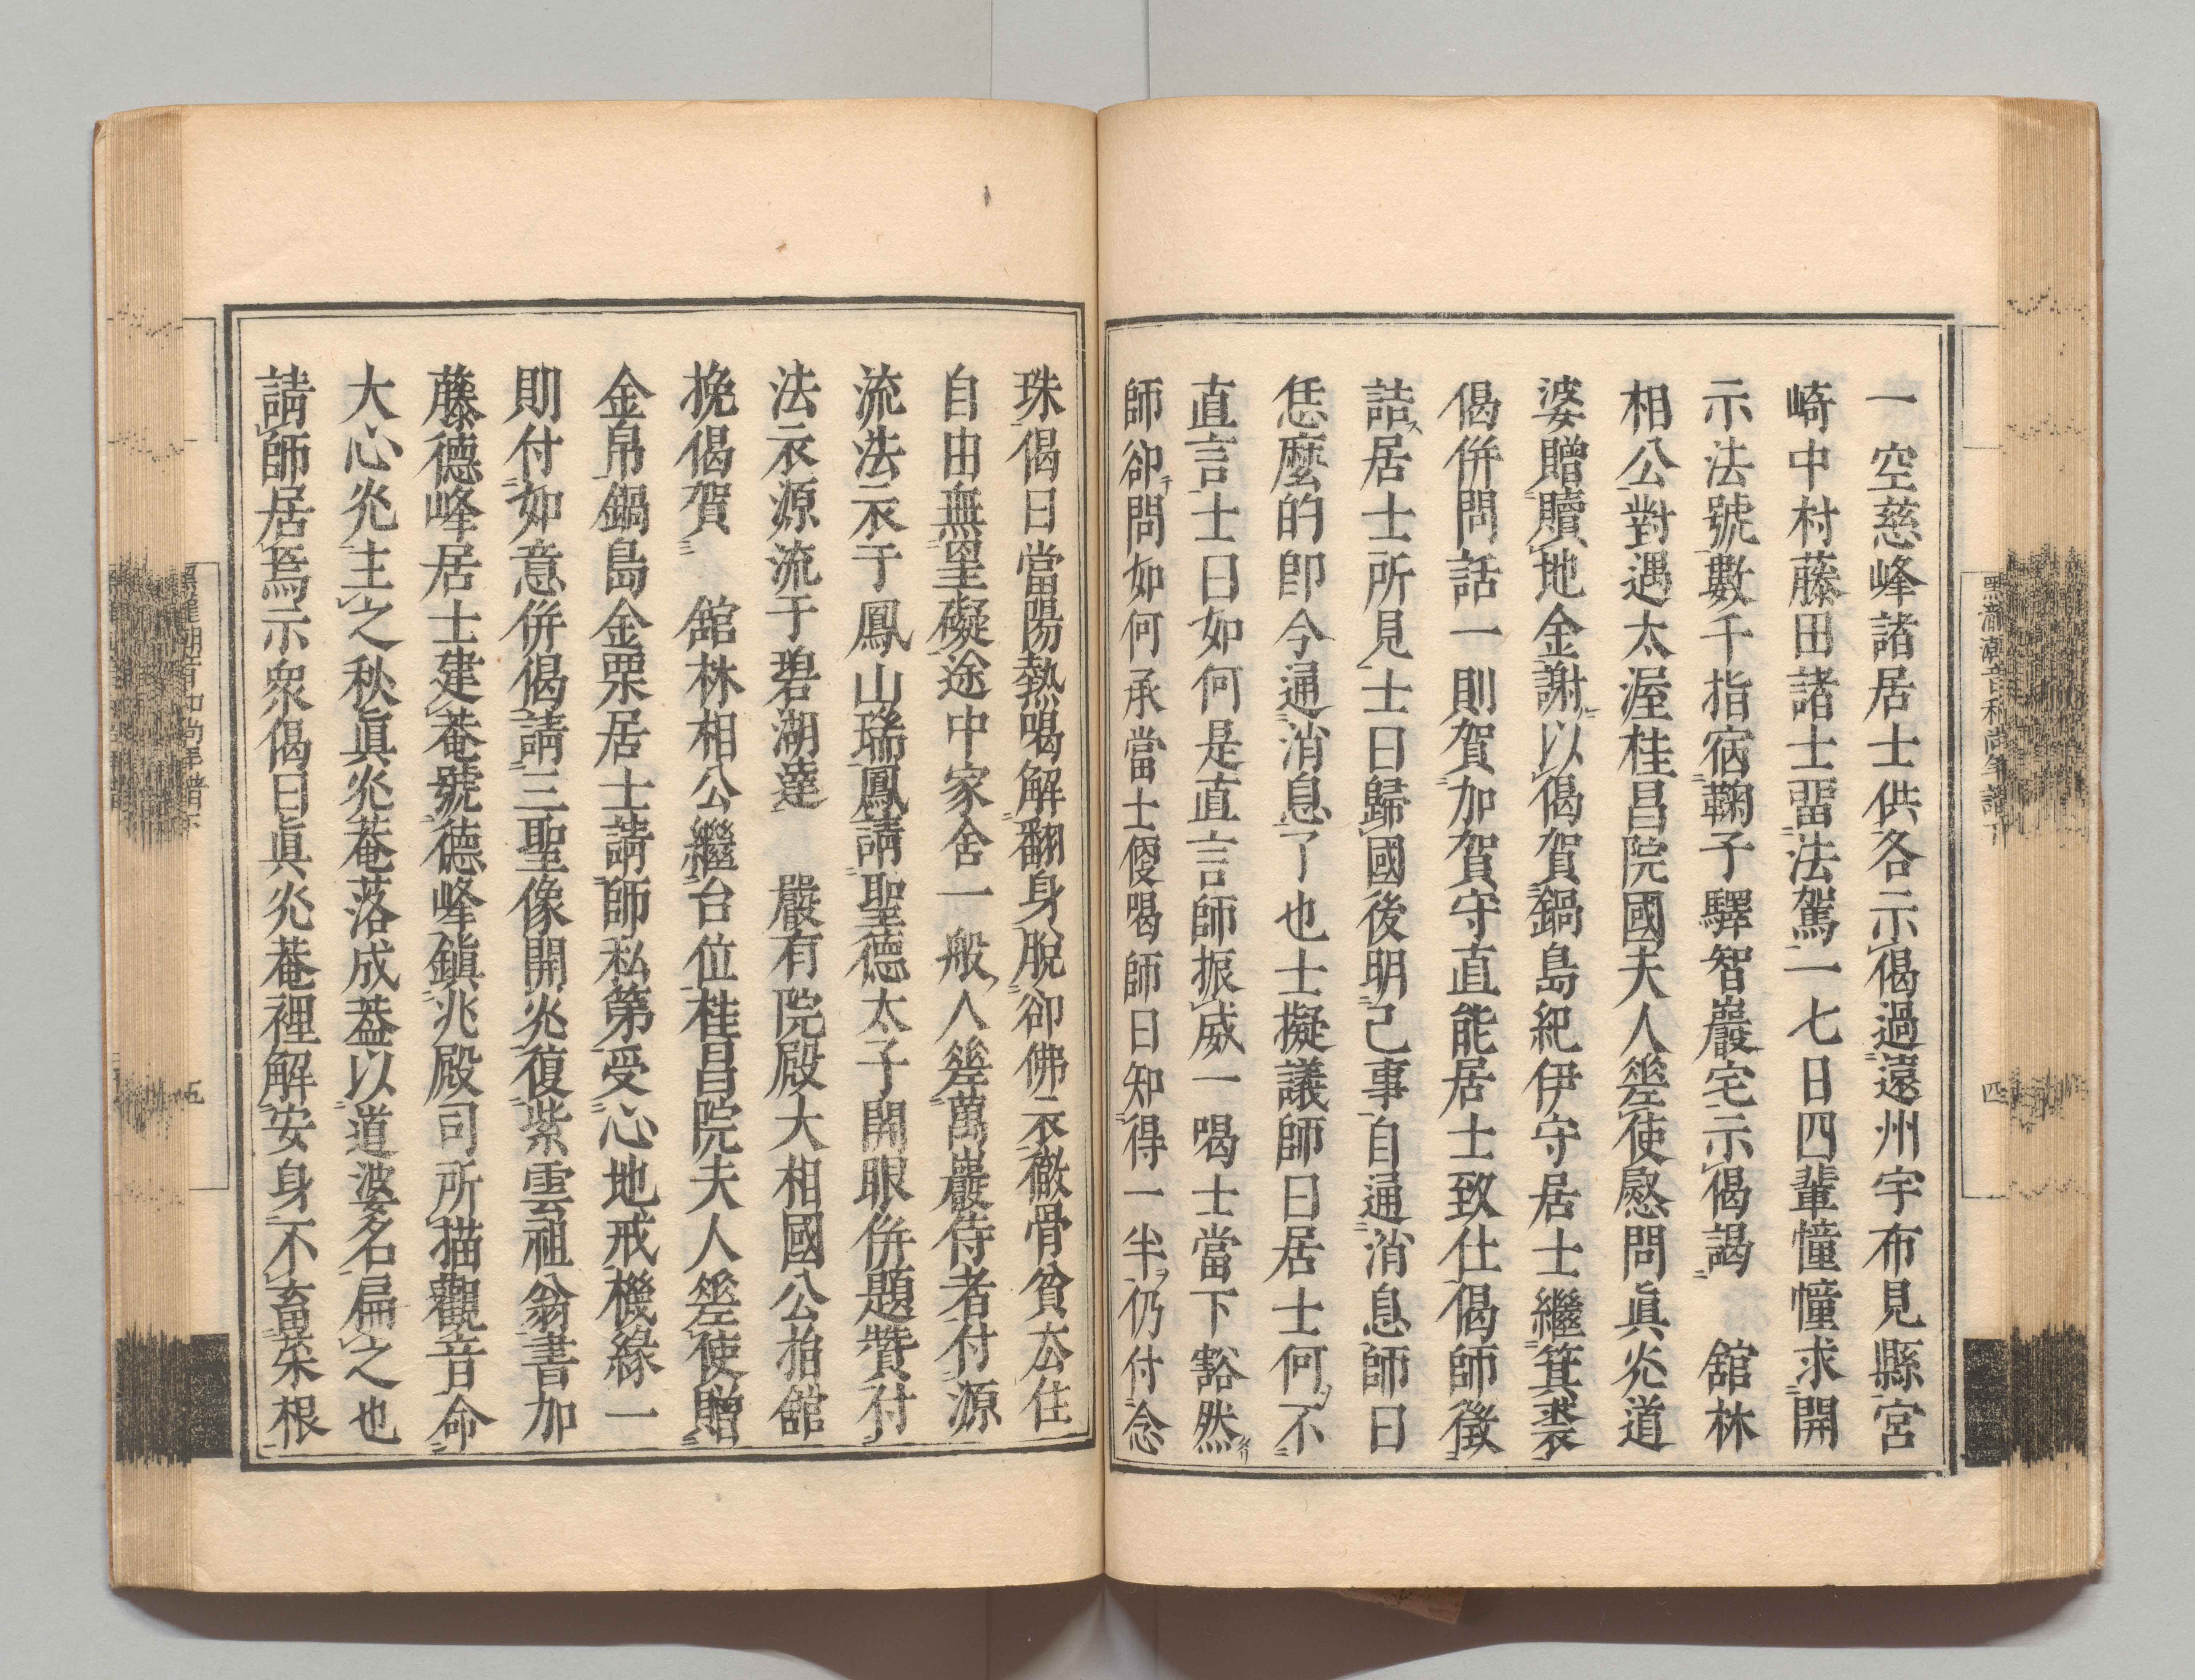 一空慈峰諸居士供各示偈過遠州宇布見縣宮
崎中村藤田諸士畱法駕一七日四輩憧憧求開
示法號數千指宿鞠子驛智巖宅示偈謁　舘林
相公對遇太渥桂昌院國夫人遣使慰問眞光道
婆贈贐地金謝以偈賀鍋島紀伊守居士繼箕裘
偈併問話一則賀加賀守直能居士致仕偈師徵
詰居士所見士曰歸國後明己事自通消息師曰
恁麼的卽今通消息了也士擬議師曰居士何不
直言士曰如何是直言師振威一喝士當下豁然
師卻問如何承當士便喝師曰知得一半仍付念
珠偈曰當陽熱喝解翻身脫卻佛衣徹骨貧去住
自由無罣礙途中家舍一般人遣萬巖侍者付源
流法衣于鳳山瑞鳳請聖德太子開眼併題贊付
法衣源流于碧湖達　嚴有院殿大相國公拍舘
挽偈賀　舘林相公繼台位桂昌院夫人遣使贈
金帛鍋島金栗居士請師私第受心地戒機緣一
則付如意併偈請三聖像開光復紫雲祖翁書加
藤德峰居士建菴號德峰鎭兆殿司所描觀音命
大心光主之秋眞光菴落成葢以道婆名扁之也
請師居焉示衆偈曰眞光菴裡解安身不畜菜根